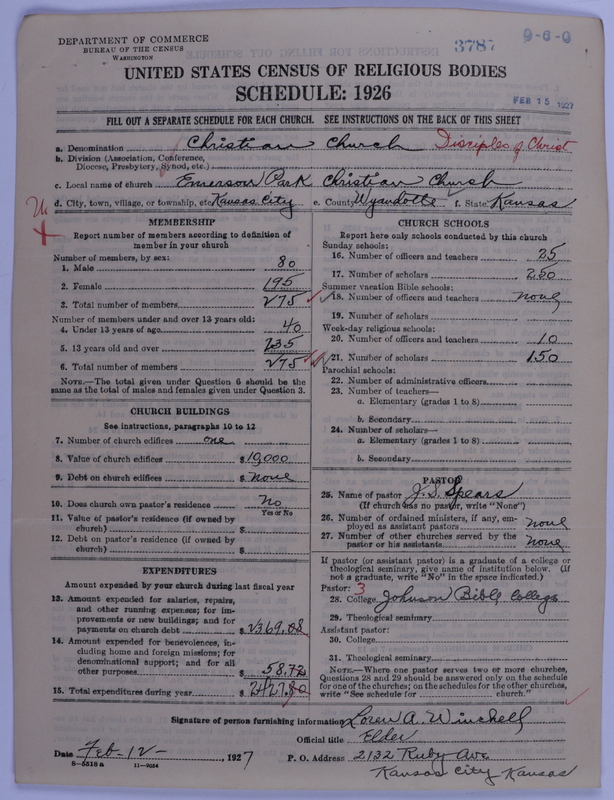 DEPARTMENT OF COMMERCE
BUREAU OF THE CENSUS
WASHINGTON
3787
9-6-0
UNITED STATES CENSUS OF RELIGIOUS BODIES
SCHEDULE: 1926
FEB 15 1927
FILL OUT A SEPARATE SCHEDULE FOR EACH CHURCH. SEE INSTRUCTIONS ON THE BACK OF THIS SHEET
a. Denomination Christian Church Disciples of Christ
b. Division (Association, Conference, Diocese, Presbytery, Synod, etc.)
c. Local name of church Emerson Park Christian Church
d. City, town, village, or township, etc. Kansas City e. County Wyandotte f. State Kansas
MEMBERSHIP
Report number of members according to definition of
member in your church
Number of members, by sex:
1. Male 80
2. Female 195
3. Total number of members 275
Number of members under and over 13 years old:
4. Under 13 years of age 40
5. 13 years old and over 235
6. Total number of members 275
NOTE.—The total given under Question 6 should be the
same as the total of males and females given under Question 3.
CHURCH BUILDINGS
See instructions, paragraphs 10 to 12
7. Number of church edifices one
8. Value of church edifices $ 10,000
9. Debt on church edifices $ none
10. Does church own pastor's residence No
Yes or No
11. Value of pastor's residence (if owned by
church) $
12. Debt on pastor's residence (if owned by
church) $
EXPENDITURES
Amount expended by your church during last fiscal year
13. Amount expended for salaries, repairs,
and other running expenses; for im-
provements or new buildings; and for
payments on church debt $ 2369.08
14. Amount expended for benevolences, in-
cluding home and foreign missions; for
denominational support; and for all
other purposes $ 58.72
15. Total expenditures during year $ 2427.80
CHURCH SCHOOLS
Report here only schools conducted by this church
Sunday schools:
16. Number of officers and teachers 25
17. Number of scholars 250
Summer vacation Bible schools:
18. Number of officers and teachers none
19. Number of scholars
Week-day religious schools:
20. Number of officers and teachers 10
21. Number of scholars 150
Parochial schools:
22. Number of administrative officers
23. Number of teachers—
a. Elementary (grades 1 to 8)
b. Secondary
24. Number of scholars—
a. Elementary (grades 1 to 8)
b. Secondary
PASTOR
25. Name of pastor J. S. Spears
(If church has no pastor, write "None")
26. Number of ordained ministers, if any, em-
ployed as assistant pastors none
27. Number of other churches served by the
pastor or his assistants none
If pastor (or assistant pastor) is a graduate of a college or
theological seminary, give name of institution below. (If
not a graduate, write "No" in the space indicated.)
Pastor: 3
28. College Johnson Bible College
29. Theological seminary
Assistant pastor:
30. College
31. Theological seminary
NOTE.—Where one pastor serves two or more churches,
Questions 28 and 29 should be answered only on the schedule
for one of the churches; on the schedules for the other churches,
write "See schedule for church."
Signature of person furnishing information Loren A. Winchell
Official title Elder
Date Feb-12-, 1927 P. O. Address 2132 Ruby Ave
8-5518 a 11-9054 Kansas City Kansas